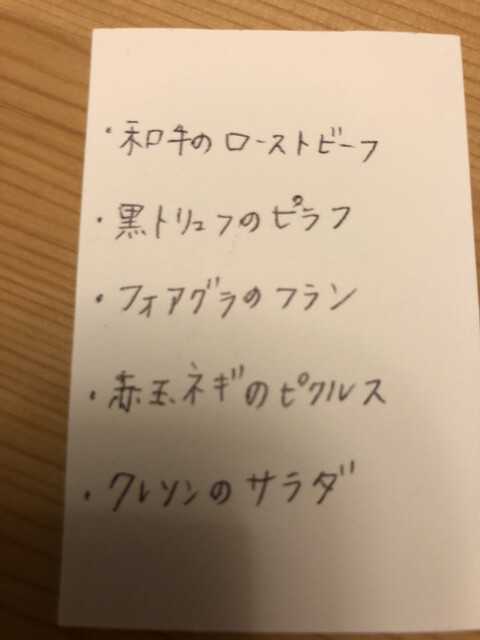 ・和牛のローストビーフ
・黒トリュフのピラフ
・フォアグラのフラン
・赤玉ネギのピクルス
・クレソンのサラダ